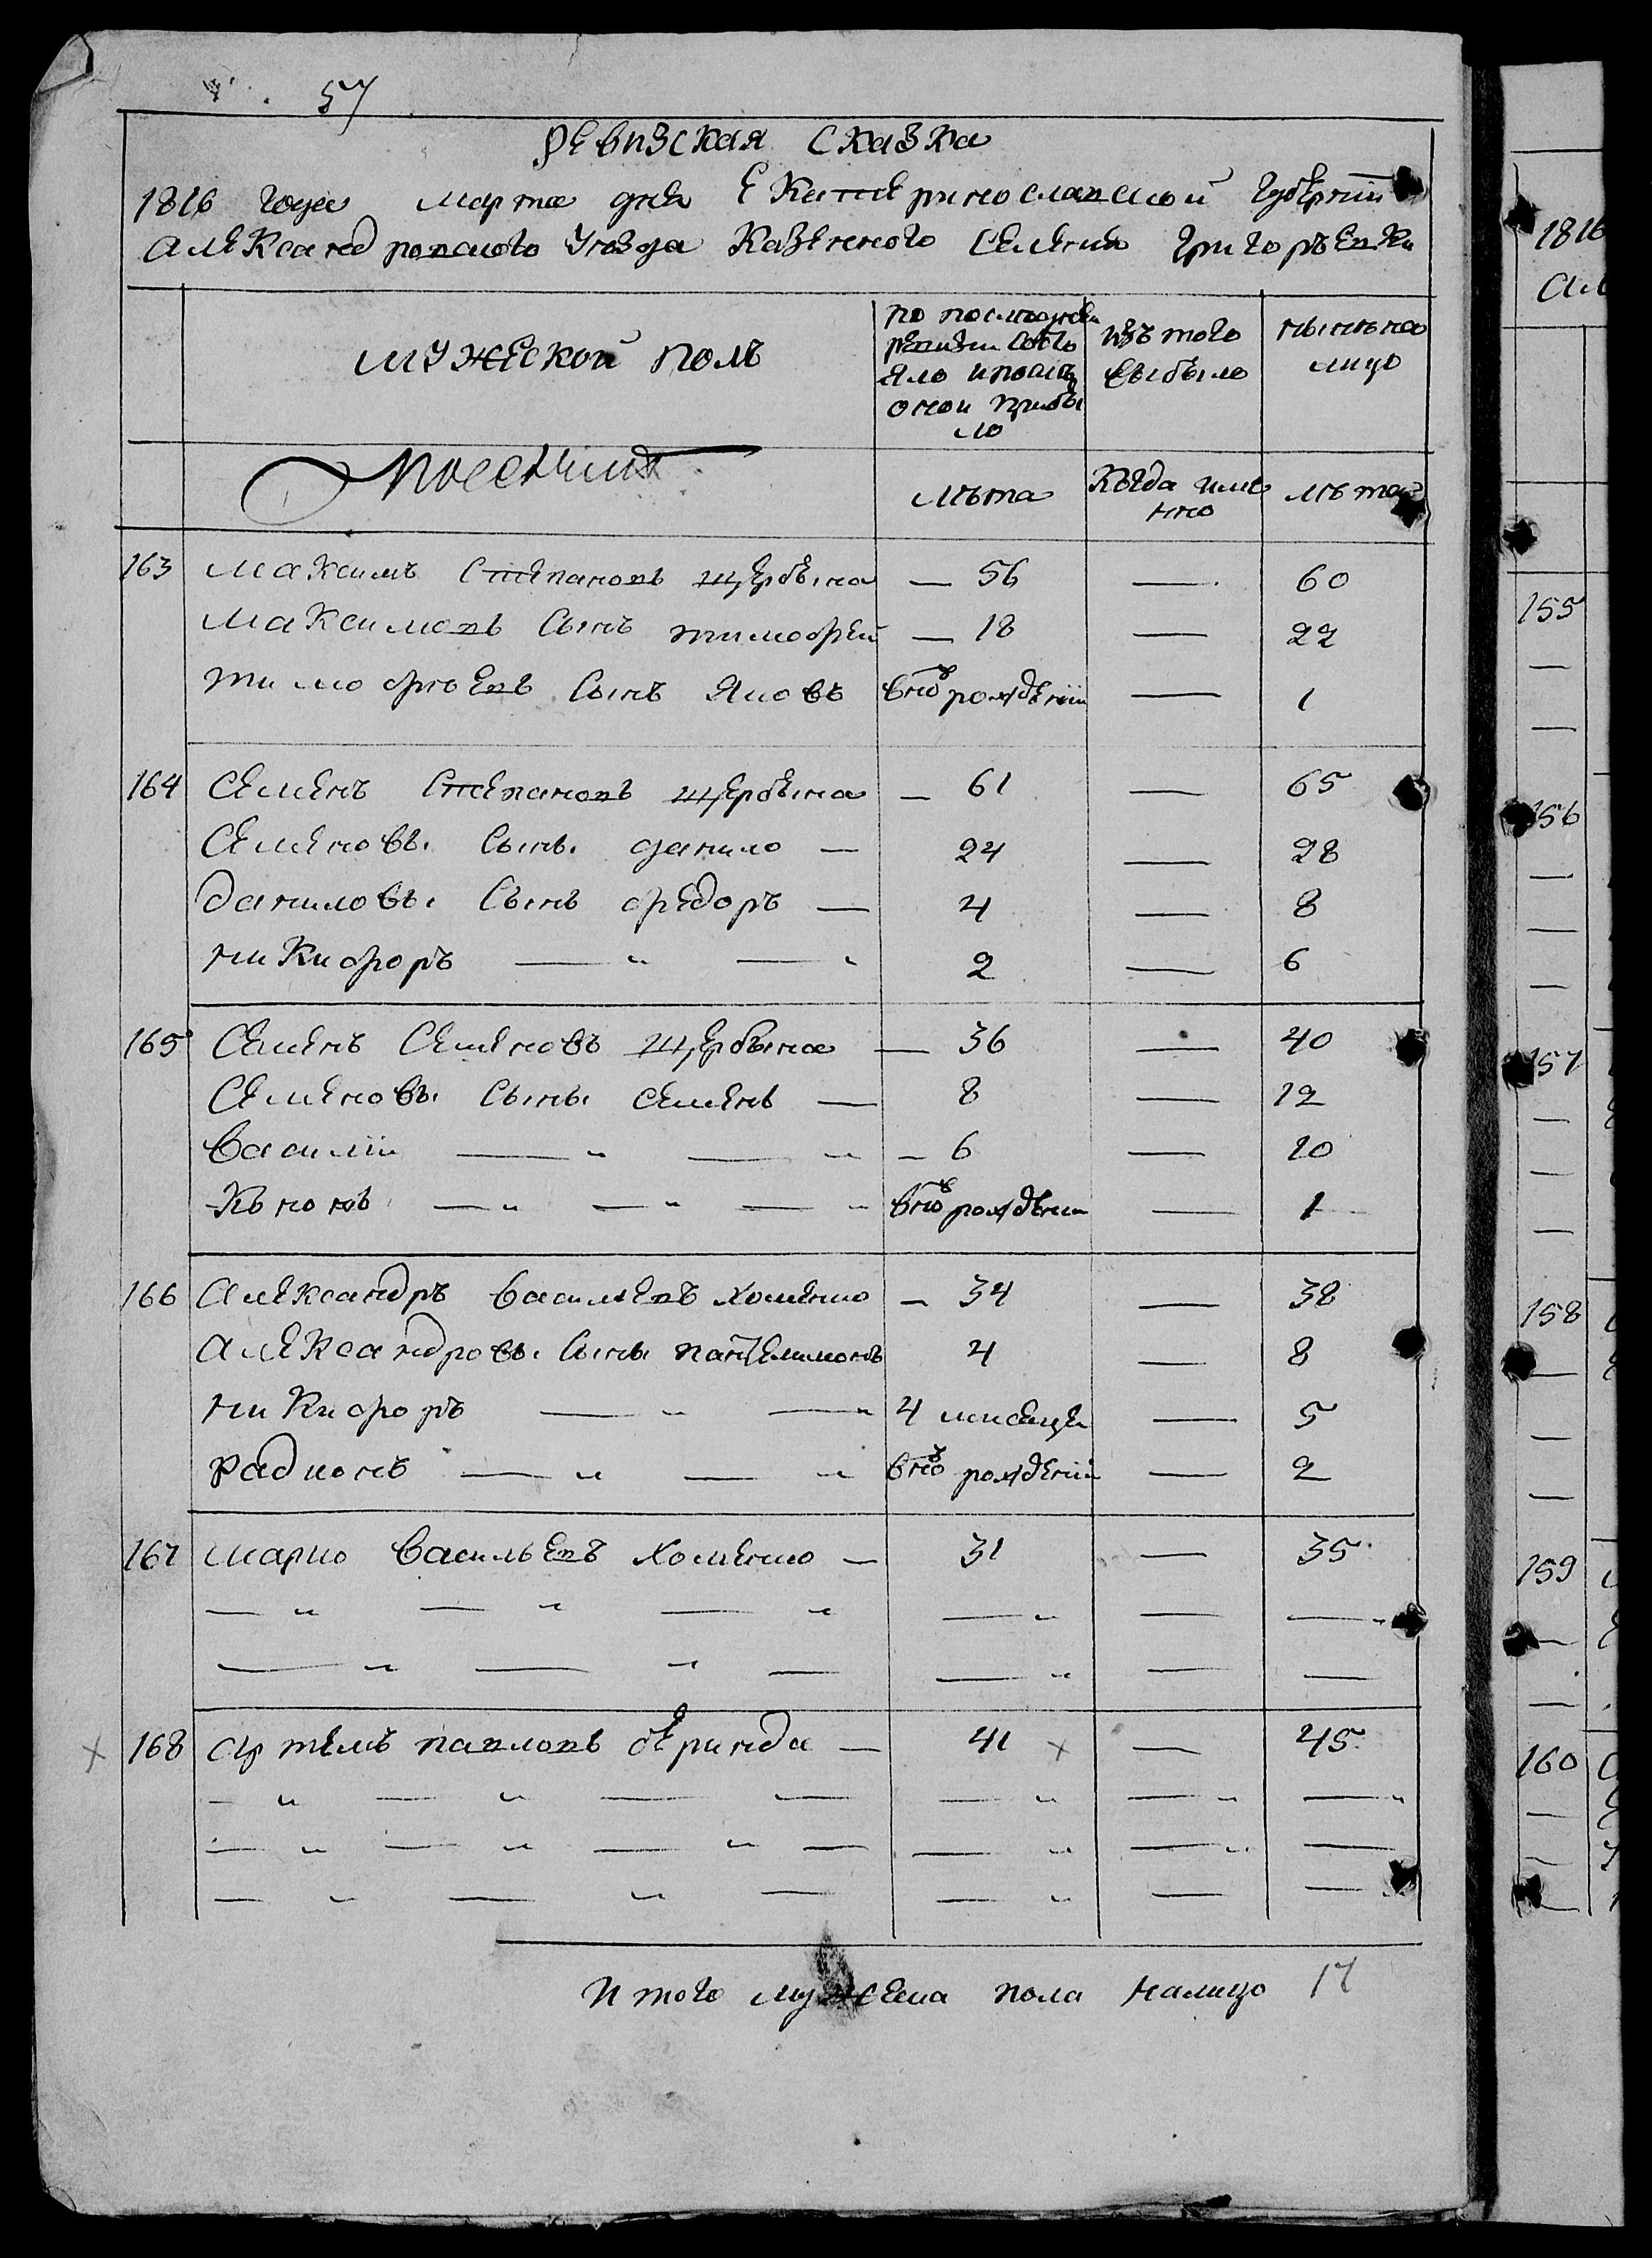 57
Ревизская сказка
1816 года марта дня Екатеринославской губернии
Александровского Уезда Казенного Селения Григорьевки
мужеской полъ
по последней
ревизии состо
яло и после
оной прибы
ло
изъ того
выбыло
ныне на
лицо
лѣта
Когда име
нно
лѣта
163 Максимъ Степановъ щербына — 56 — 60
Максимовъ Сынъ тимофей — 18 — 22
тимофѣевъ Сынъ Яковъ вновъ рождении — 1
164 Семенъ Степановъ щербына — 61 — 65
Семеновъ Сынъ данило — 24 — 28
даниловы Сынъ федоръ — 4 — 8
никифоръ — " — " 2 — 6
165 Семенъ Семеновъ щербына — 36 — 40
Семеновы Сыны семенъ — 8 — 12
Василій — " — " — 6 — 10
Кононъ — " — " — " вновъ рождении — 1
166 Александръ васильевъ хоменко — 34 — 38
Александровы Сыны пантелимонъ 4 — 8
никифоръ — " — " 4 мисецеи — 5
радионъ — " — " вновъ рождении — 2
167 марко васильевъ хоменко — 31 — 35
— " — " — " — " — — "
— " — " — — " — —
168 Артемъ павловъ беринда — 41 × — 45
— " — " — — — " — " — "
— " — " — " — — " — " —
— " — " — — " — —
Итого мужеска пола налицо 17
1816
155
156
157
158
159
160